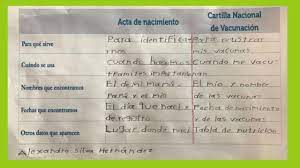 Acta de nacimiento
Cartilla Nacional
de Vacunación
Para qué sirve
Para identificar
nos
Para registrar
mis vacunas
Cuándo se usa
Cuando hacemos
tramites
Cuando me vacu
Nombres que encontramos
El de mi mamá
Papá y el mio
El mio y nombre
de las vacunas
Fechas que encontramos
El día que nací
de registro
Fecha de nacimiento
y de las vacunas
Otros datos que aparecen
Lugar donde nací
Tabla de nutricion
Alexandro Silva Hernández